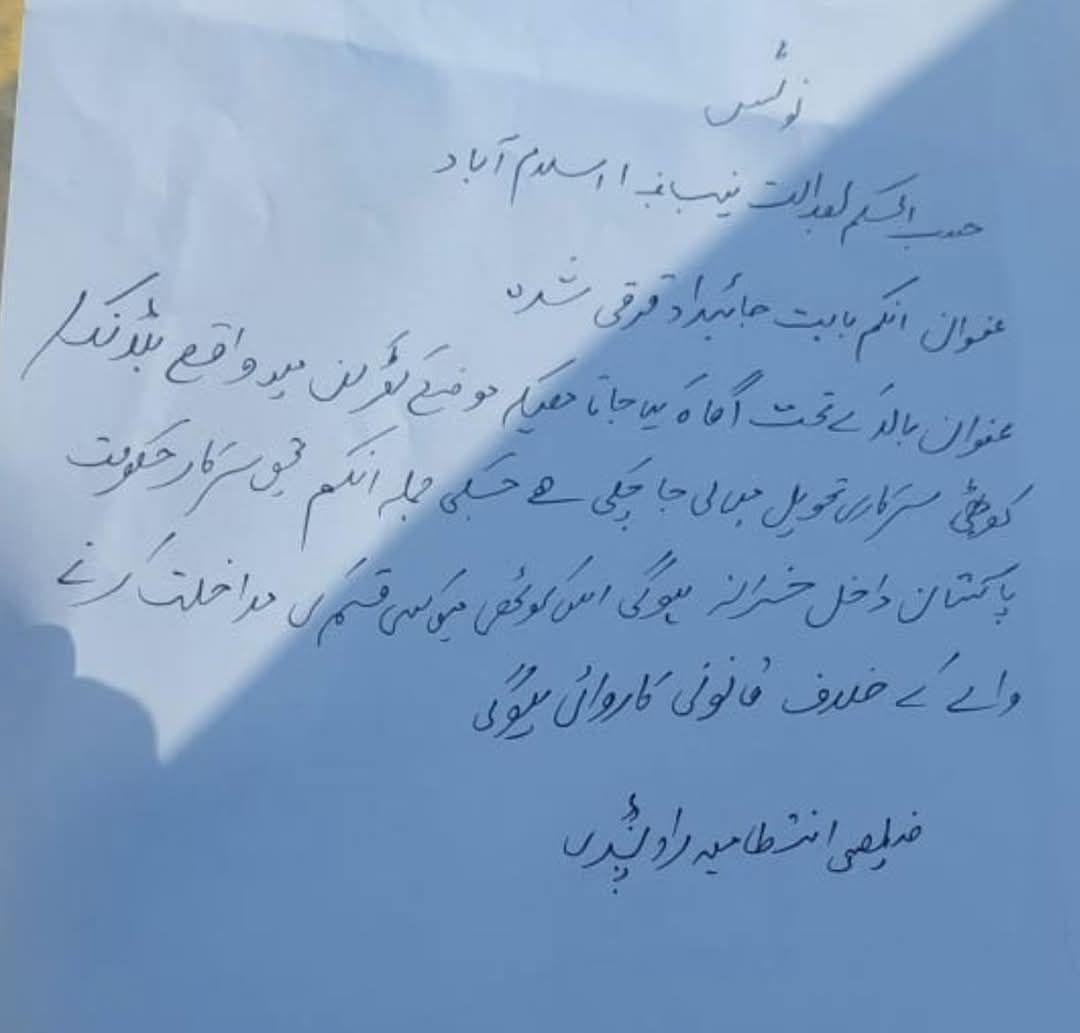 نوٹس
حسب الحکم بعدالت نیب نمبر 1 اسلام آباد
عنوان انکم بابت جائیداد قرقی شدہ
عنوان بالا کے تحت آگاہ کیا جاتا ھیکہ موضع میں واقع بلڈنگ /
کوٹھی سرکاری تحویل میں لی جا چکی ھے جسکی جملہ انکم بحق سرکار حکومت
پاکستان داخل خزانہ ہوگی اس کوٹھی میں کسی قسم کی مداخلت کرنے
والے کے خلاف قانونی کاروائی ہوگی
ضلعی انتظامیہ راولپنڈی